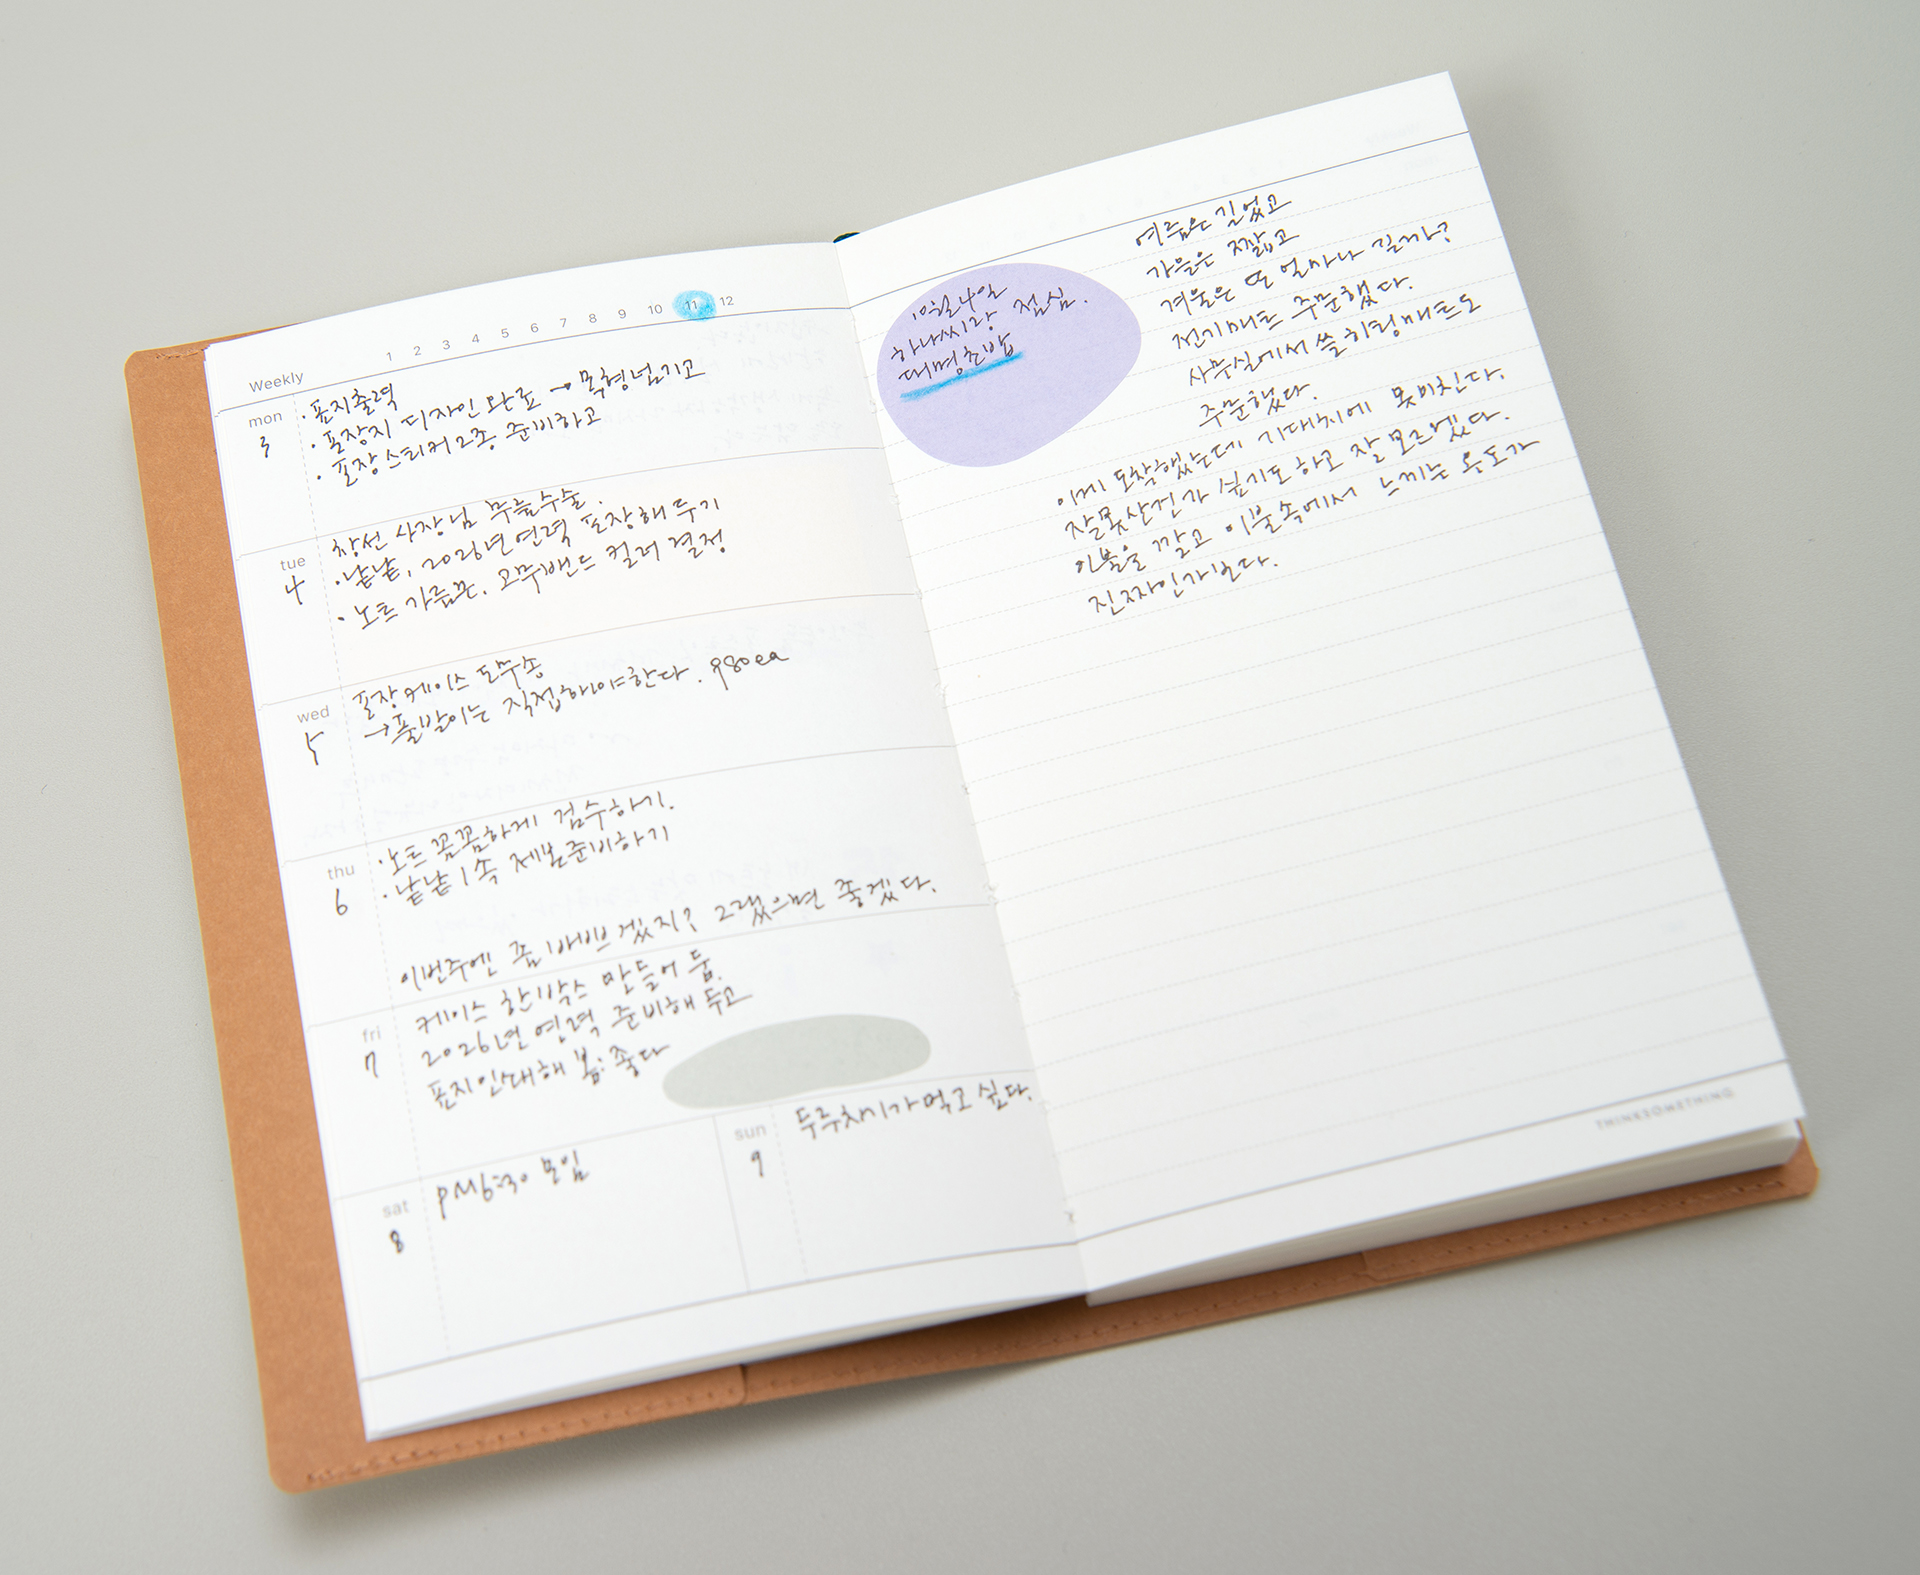 Weekly
1 2 3 4 5 6 7 8 9 10 11 12
mon
3
· 표지출력
· 포장지 디자인 완료 → 목형넘기고
· 포장 스티커 2종 준비하고
tue
4
창선 사장님 무릎수술.
· 낱낱, 2026년 연력 포장해 두기
· 노트 가름끈, 고무밴드 컬러 결정
wed
5
포장 케이스 도무송
→ 풀발이는 직접해야한다. 980ea
thu
6
· 노트 꼼꼼하게 검수하기.
· 낱낱 1속 제본준비하기
이번주엔 좀 바쁘겠지? 그랬으면 좋겠다.
fri
7
케이스 한박스 만들어 둠.
2026년 연력 준비해 두고
표지인쇄해 봄. 좋다
sat
8
PM6:30 모임
sun
9
두루치기가 먹고 싶다.
10월4일
하나씨랑 점심.
대명초밥
여름은 길었고
가을은 짧고
겨울은 또 얼마나 길까?
전기매트 주문했다.
사무실에서 쓸 히팅매트도
주문했다.
어제 도착했는데 기대치에 못미친다.
잘못산건가 싶기도 하고 잘 모르겠다.
이불을 깔고 이불속에서 느끼는 온도가
진짜인가보다.
THINKSOMETHING